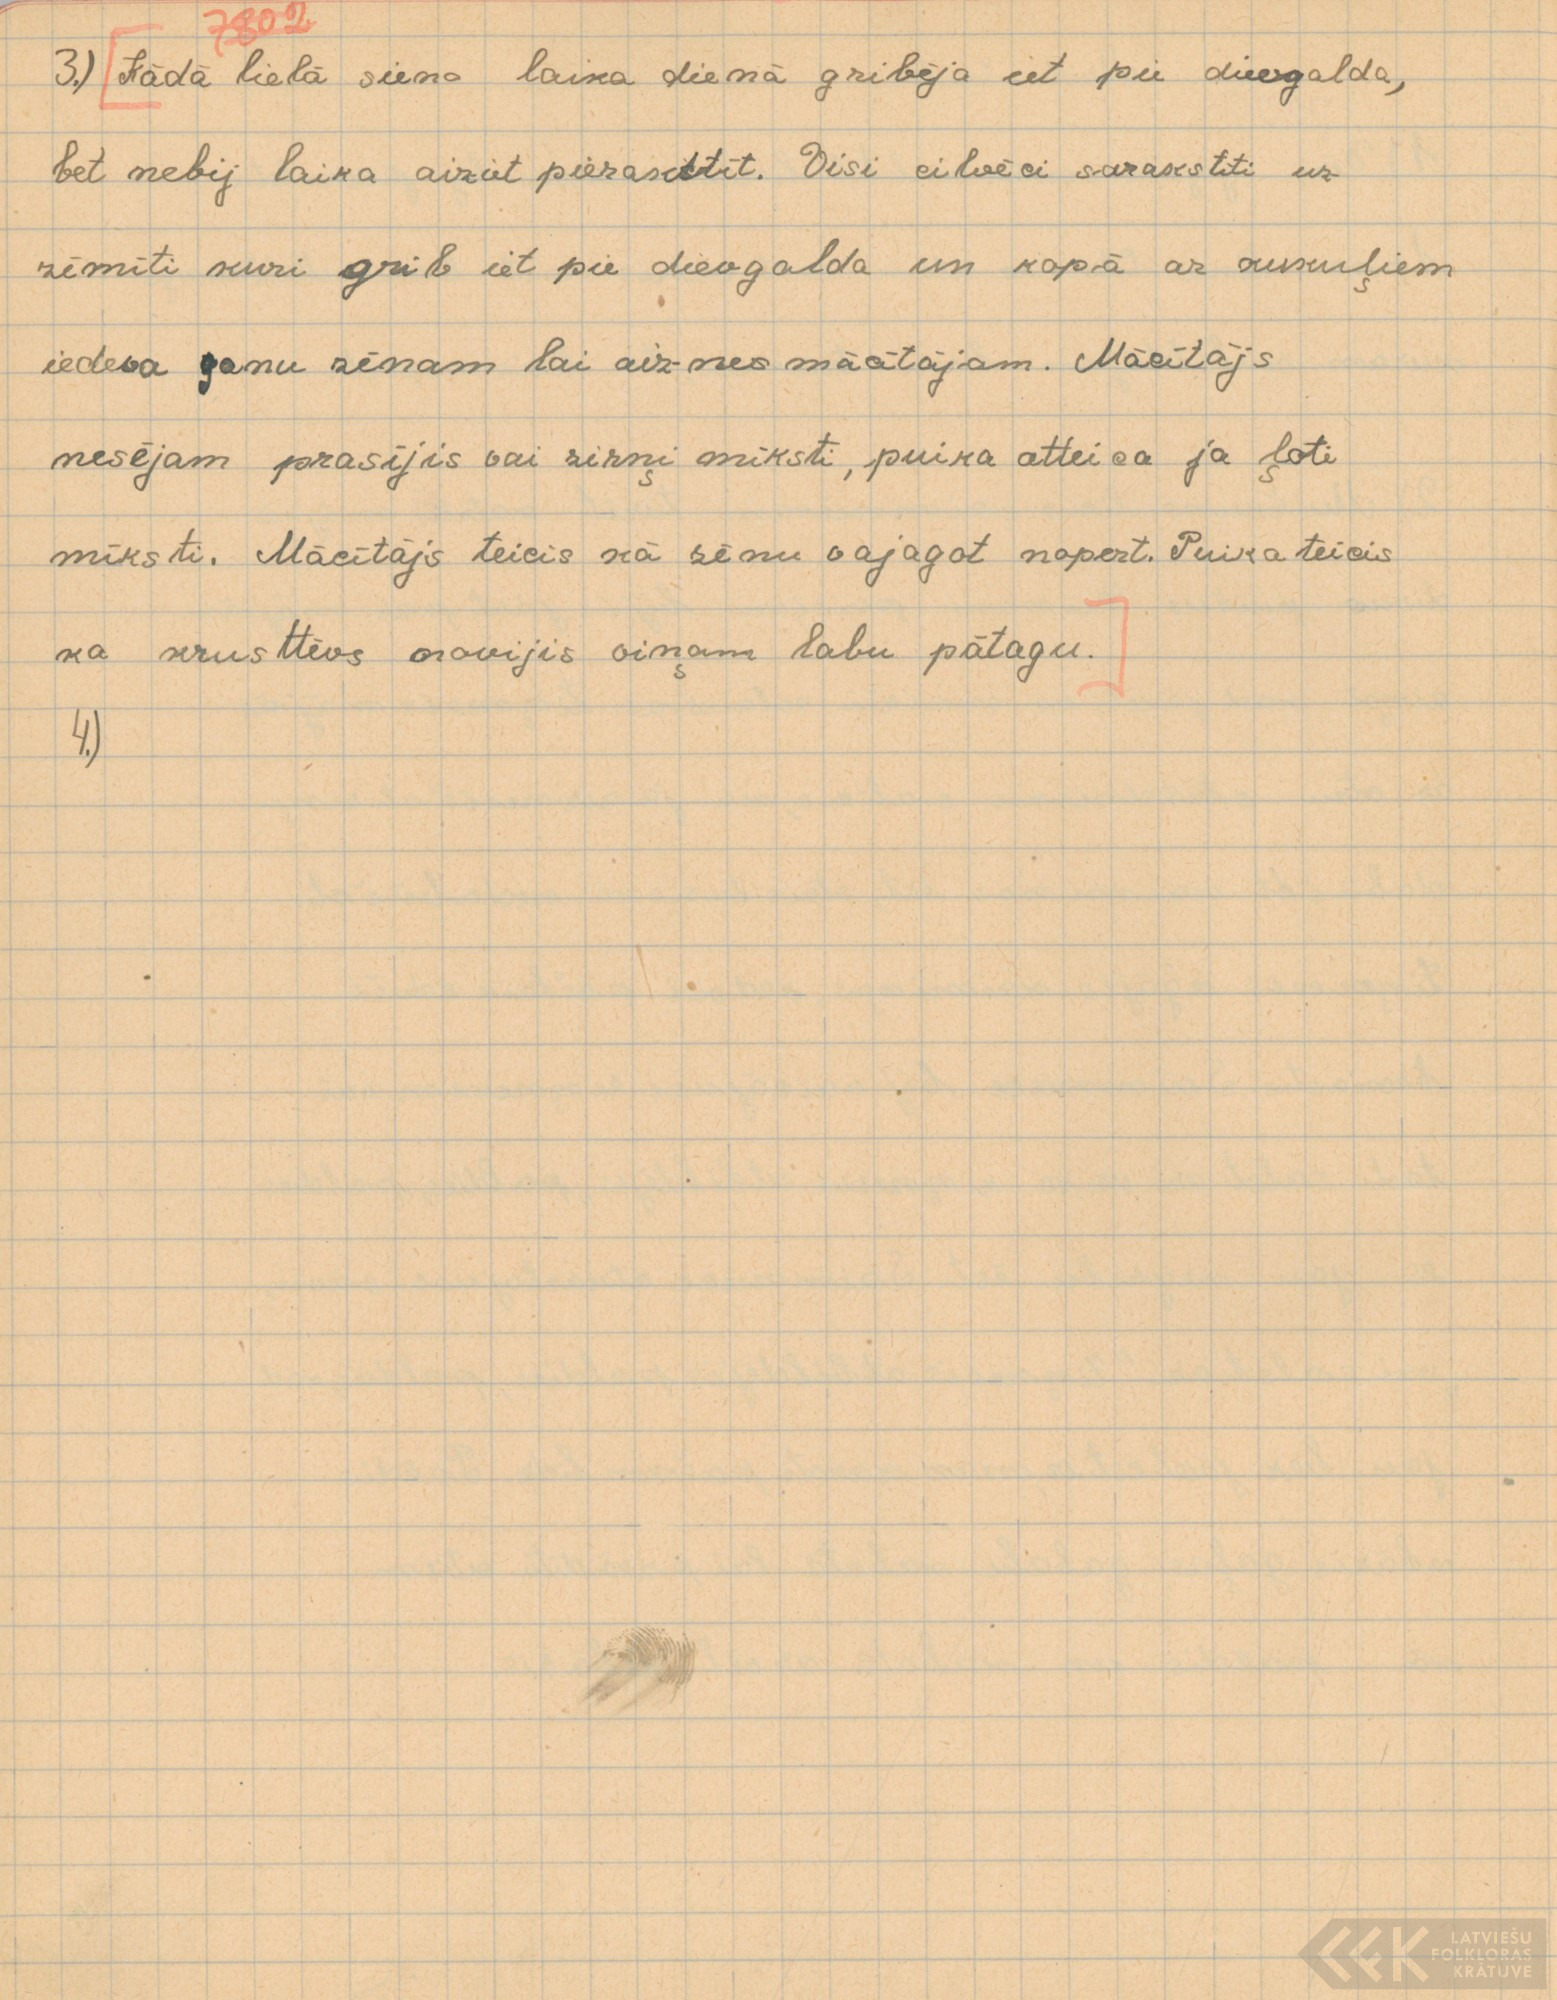 7802
3.) [Kādā lielā siena laika dienā gribēja iet pie dievgalda,
bet nebij laika aiziet pierakstīt. Visi cilvēci sarakstīti uz-
zīmīti kuri grib iet pie dievgalda un kopā ar kukuļiem
iedeva ganu zēnam lai aiz-nes mācītājam. Mācītājs
nesējam prasījis vai zirņi mīksti, puika atteica ja ļoti
mīksti. Mācītājs teicis kā zēnu vajagot nopert. Puika teicis
ka krusttēvs novijis viņam labu pātagu.]
4.)
LATVIEŠU
FOLKLORAS
KRĀTUVE